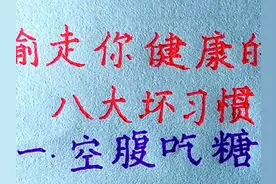 偷走你健康的
八大坏习惯
一.空腹吃糖